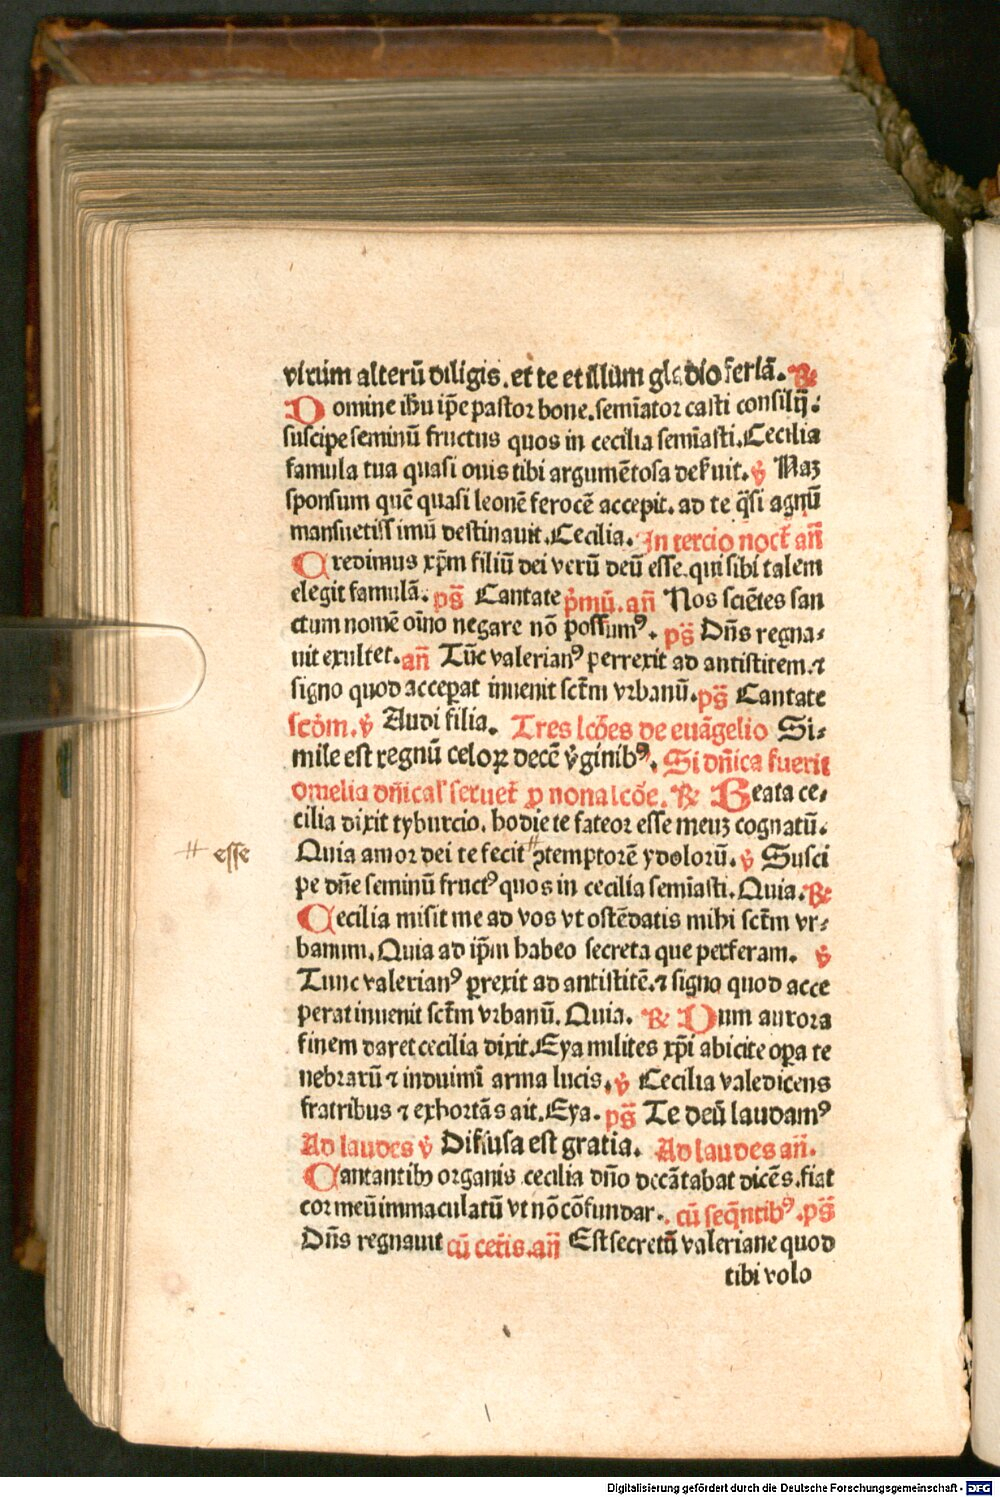 virum alterū diligis. et te et illum gladio feriā. ℟
Domine ihū xp̄e pastor bone. semīator casti consilij:
suscipe seminū fructus quos in cecilia semīasti. Cecilia
famula tua quasi ouis tibi argumētosa deẜuit. ℣ Naꝫ
sponsum quē quasi leonē ferocē accepit. ad te q̄si agnū
mansuetissimū destinauit. Cecilia. In tercio noct̄ an̄
Credimus xp̄m filiū dei verū deū esse. qui sibi talem
elegit famulā. ps̄ Cantate p̓mū. an̄ Nos sciētes san
ctum nomē oīno negare nō possumꝰ. ps̄ Dn̄s regna⸗
uit exultet. an̄ Tūc valerianꝰ perrexit ad antistitem. ⁊
signo quod acceperat inuenit sct̄m vrbanū. ps̄ Cantate
scd̓m. ℣ Audi filia. Tres lcōes de euāgelio Si⸗
mile est regnū celoꝝ decē v̓ginibꝰ. Si dn̄ica fuerit
omelia dn̄ical' seruet̄ ꝓ nona lcōe. ℟ Beata ce⸗
cilia dixit tyburcio. hodie te fateor esse meuꝫ cognatū.
Quia amor dei te fecit ꝯtemptorē ydolorū. ℣ Susci
pe dn̄e seminū fructꝰ quos in cecilia semīasti. Quia. ℟
# esse
Cecilia misit me ad vos vt ostēdatis mihi sct̄m vr⸗
banum. Quia ad ip̄m habeo secreta que perferam. ℣
Tunc valerianꝰ ꝑrexit ad antistitē. ⁊ signo quod acce
perat inuenit sct̄m vrbanū. Quia. ℟ Dum aurora
finem daret cecilia dixit. Eya milites xp̄i abicite oꝑa te
nebrarū ⁊ induimī arma lucis. ℣ Cecilia valedicens
fratribus ⁊ exhortās ait. Eya. ps̄ Te deū laudamꝰ
Ad laudes ℣ Diffusa est gratia. Ad laudes an̄.
Cantantibꝫ organis cecilia dn̄o decātabat dicēs. fiat
cor meū immaculatū vt nō cōfundar. cū seq̄ntibꝰ. ps̄
Dn̄s regnauit cū cet̄is. an̄ Est secretū valeriane quod
tibi volo
Digitalisierung gefördert durch die Deutsche Forschungsgemeinschaft - DFG